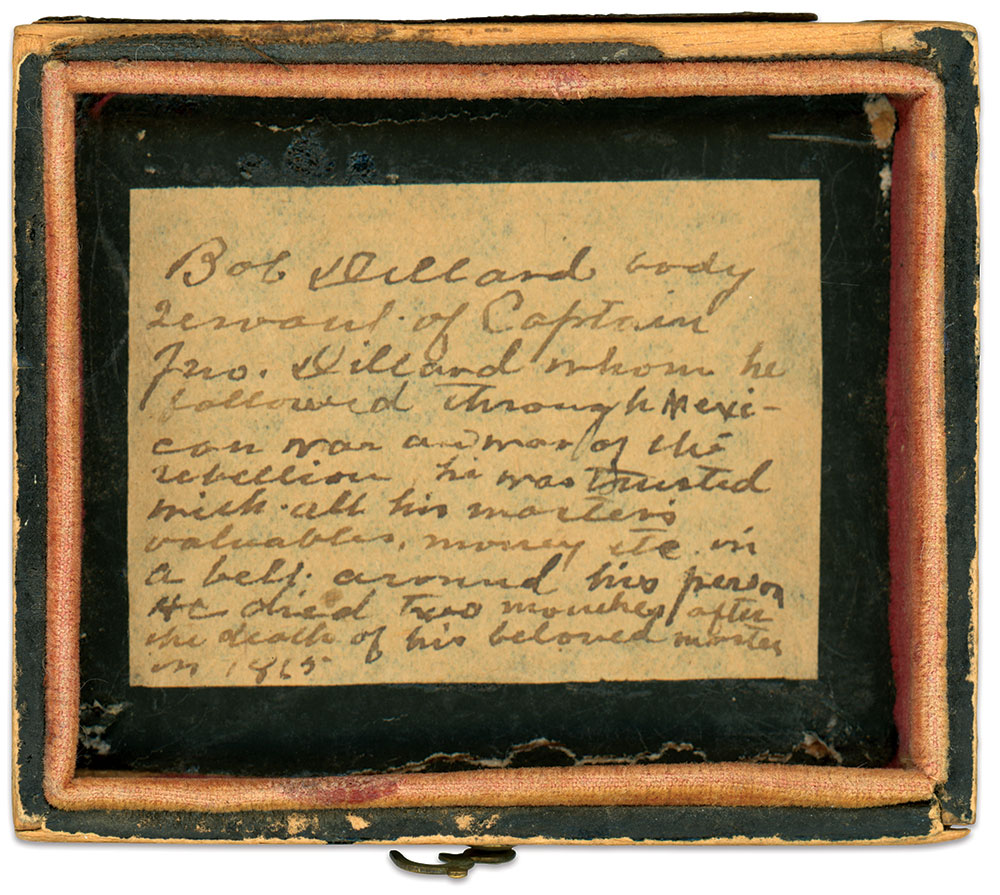 Bob Dillard body
servant of Captain
Jno. Dillard whom he
followed through Mexi-
can war and war of the
rebellion, he was trusted
with all his masters
valuables, money etc. in
a belt around his person
He died two monthes after
the death of his beloved master
in 1865